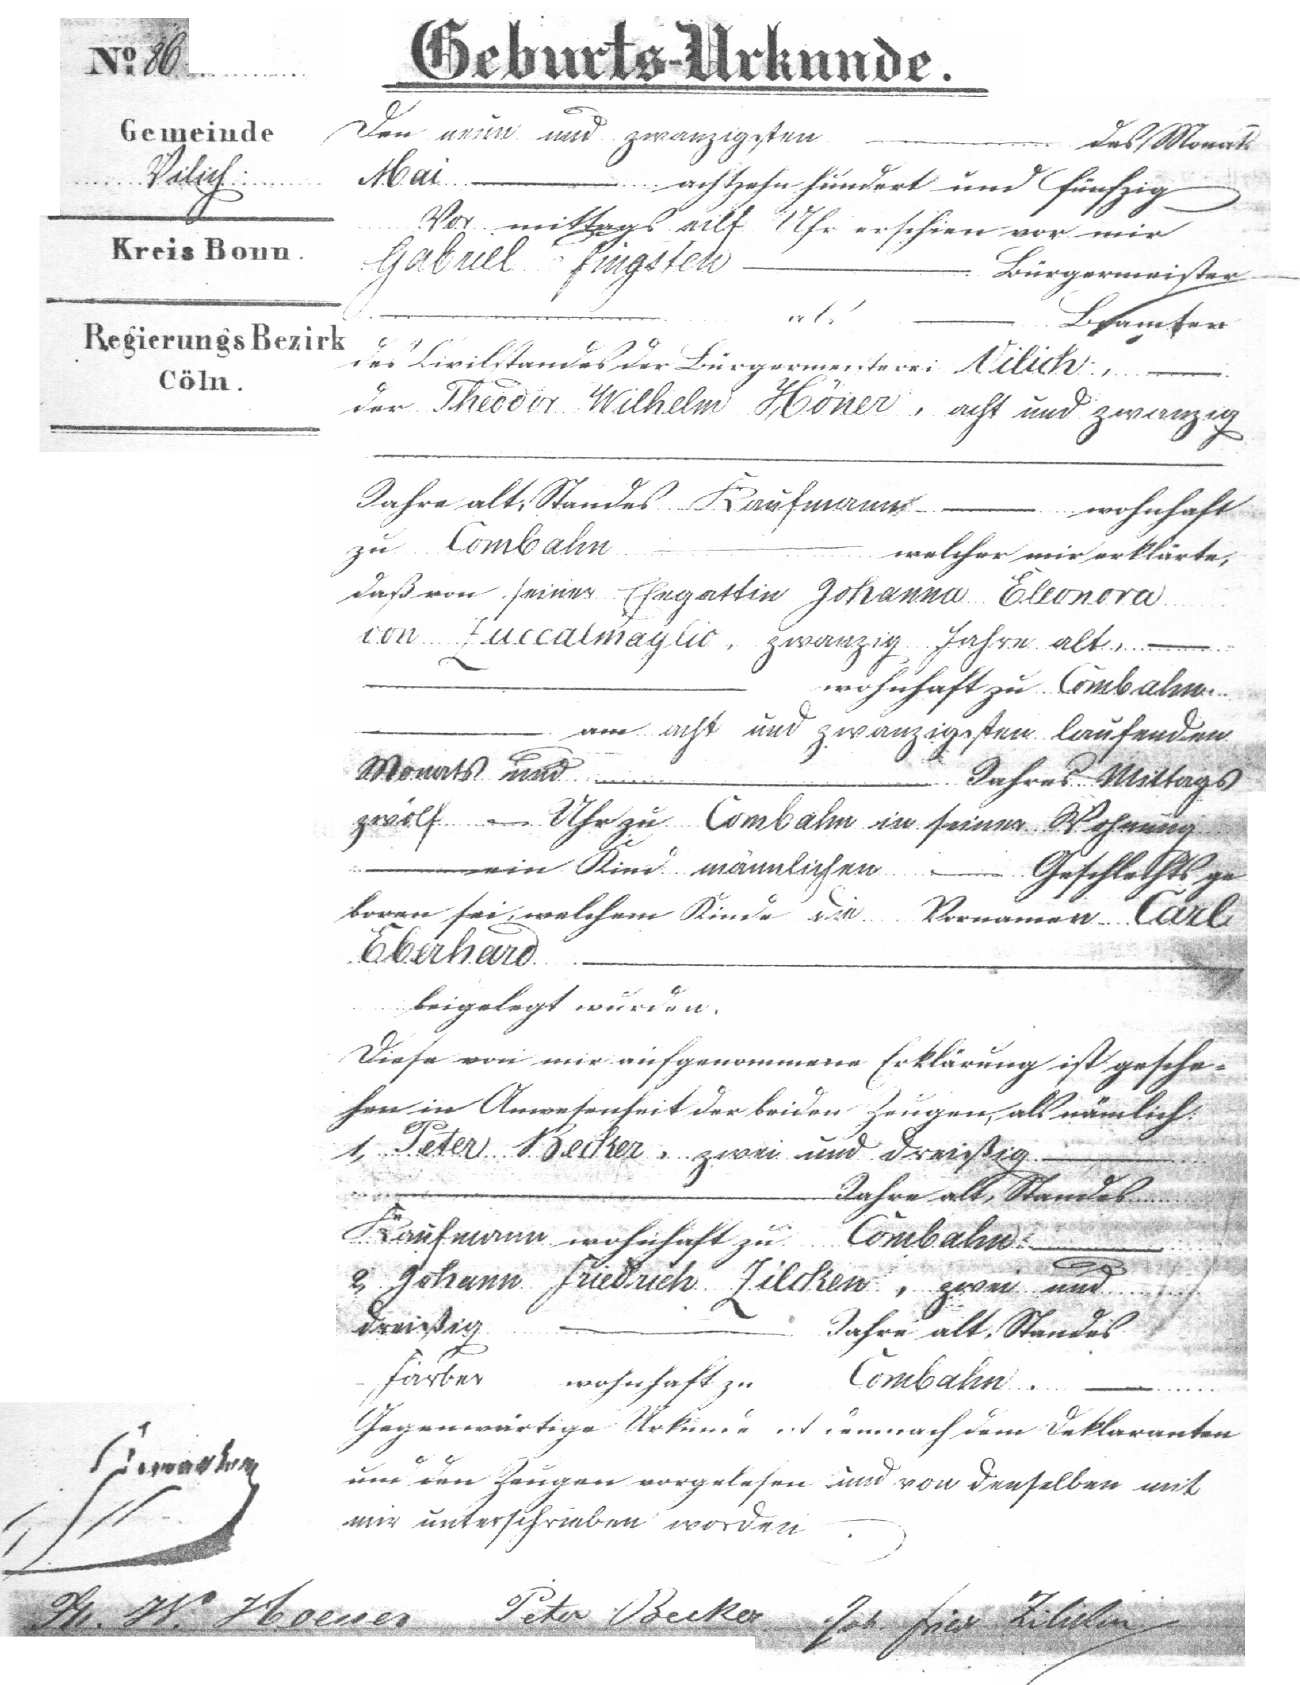 No. 86
Geburts-Urkunde.
Gemeinde
Vilich
Kreis Bonn.
Regierungs Bezirk
Cöln.
Den neun und zwanzigsten des Monats
Mai achtzehn hundert und fünfzig
Vor mittags eilf Uhr erschien vor mir
Gabriel Jüngsten Bürgermeister
als Beamter
des Civilstandes der Bürgermeisterei Vilich,
der Theodor Wilhelm Höner, acht und zwanzig
Jahre alt, Standes Kaufmann wohnhaft
zu Combahn welcher mir erklärte,
daß von seiner Ehegattin Johanna Eleonora
von Zuccalmaglio, zwanzig Jahre alt,
wohnhaft zu Combahn
am acht und zwanzigsten laufenden
Monats und Jahres Mittags
zwölf Uhr zu Combahn in seiner Wohnung
ein Kind männlichen Geschlechts ge
boren sei, welchem Kinde die Vornamen Carl
Eberhard
beigelegt wurden.
Diese von mir aufgenommene Erklärung ist gesche-
hen in Anwesenheit der beiden Zeugen, als nämlich:
1, Peter Becker, zwei und dreißig
Jahre alt, Standes
Kaufmann wohnhaft zu Combahn
2, Johann Friedrich Zilcken, zwei und
dreißig Jahre alt, Standes
Färber wohnhaft zu Combahn.
Gegenwärtige Urkunde ist demnach dem Deklaranten
und den Zeugen vorgelesen und von denselben mit
mir unterschrieben worden
Th. W. Hoener Peter Becker Joh. Fried Zilcken